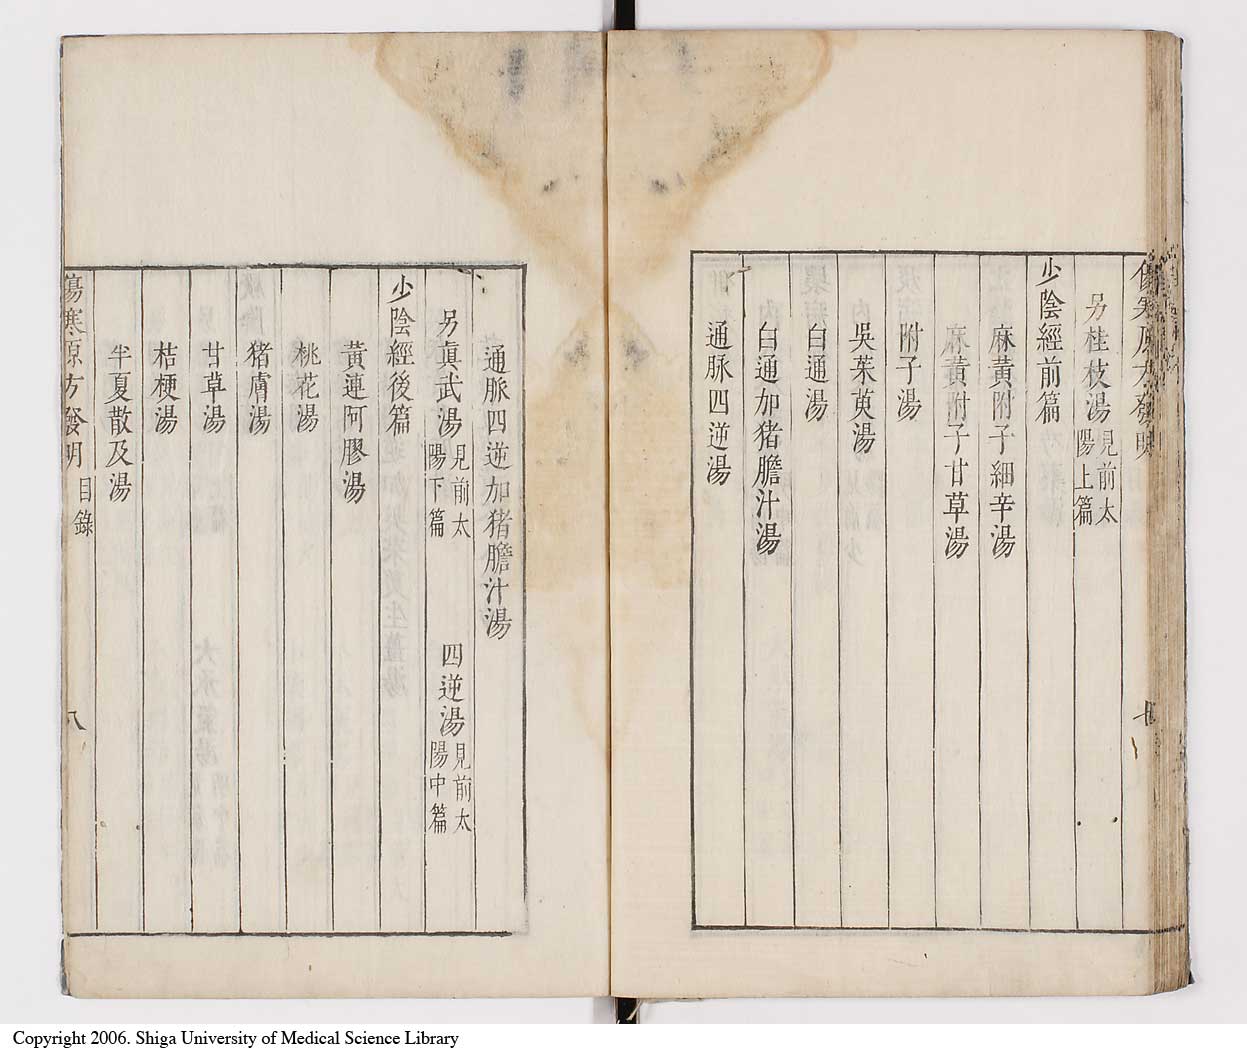 另桂枝湯 見前太陽上篇
少陰經前篇
麻黃附子細辛湯
麻黃附子甘草湯
附子湯
吳茱萸湯
白通湯
白通加猪膽汁湯
通脉四逆湯
通脉四逆加猪膽汁湯
另眞武湯 見前太陽下篇 四逆湯 見前太陽中篇
少陰經後篇
黃連阿膠湯
桃花湯
猪膚湯
甘草湯
桔梗湯
半夏散及湯
傷寒原方發明 目錄 八
Copyright 2006. Shiga University of Medical Science Library